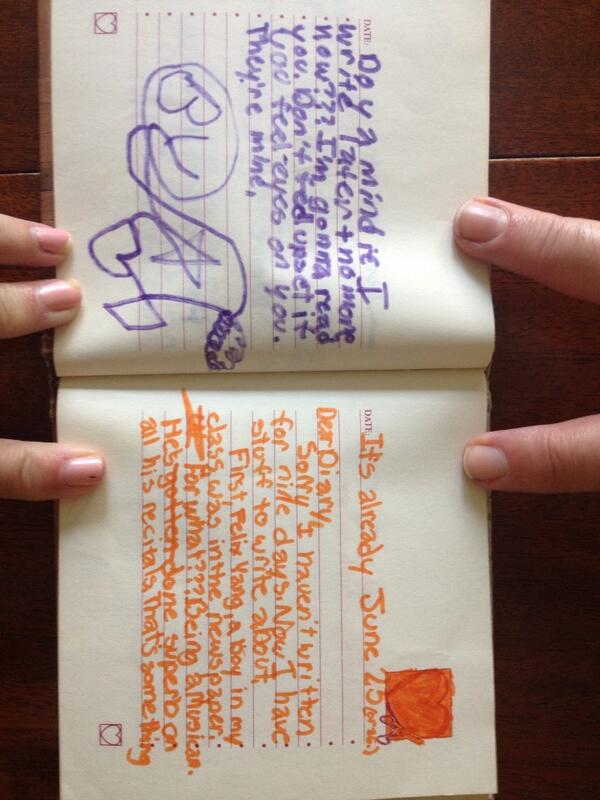 DATE:
Do y a mind if I
write later + no more
now??? I'm gonna read
you. Don't feel upset if
you feel eyes on you.
They're mine,
BY
DATE:
It's already June 25 (or 26.)
Dear Diary,
Sorry I haven't written
for nine days. Now I have
stuff to write about.
First, Felix Yang, a boy in my
class was in the newspaper.
For what??? Being a musician.
He's gotten done superb on
all his recitals. That's something